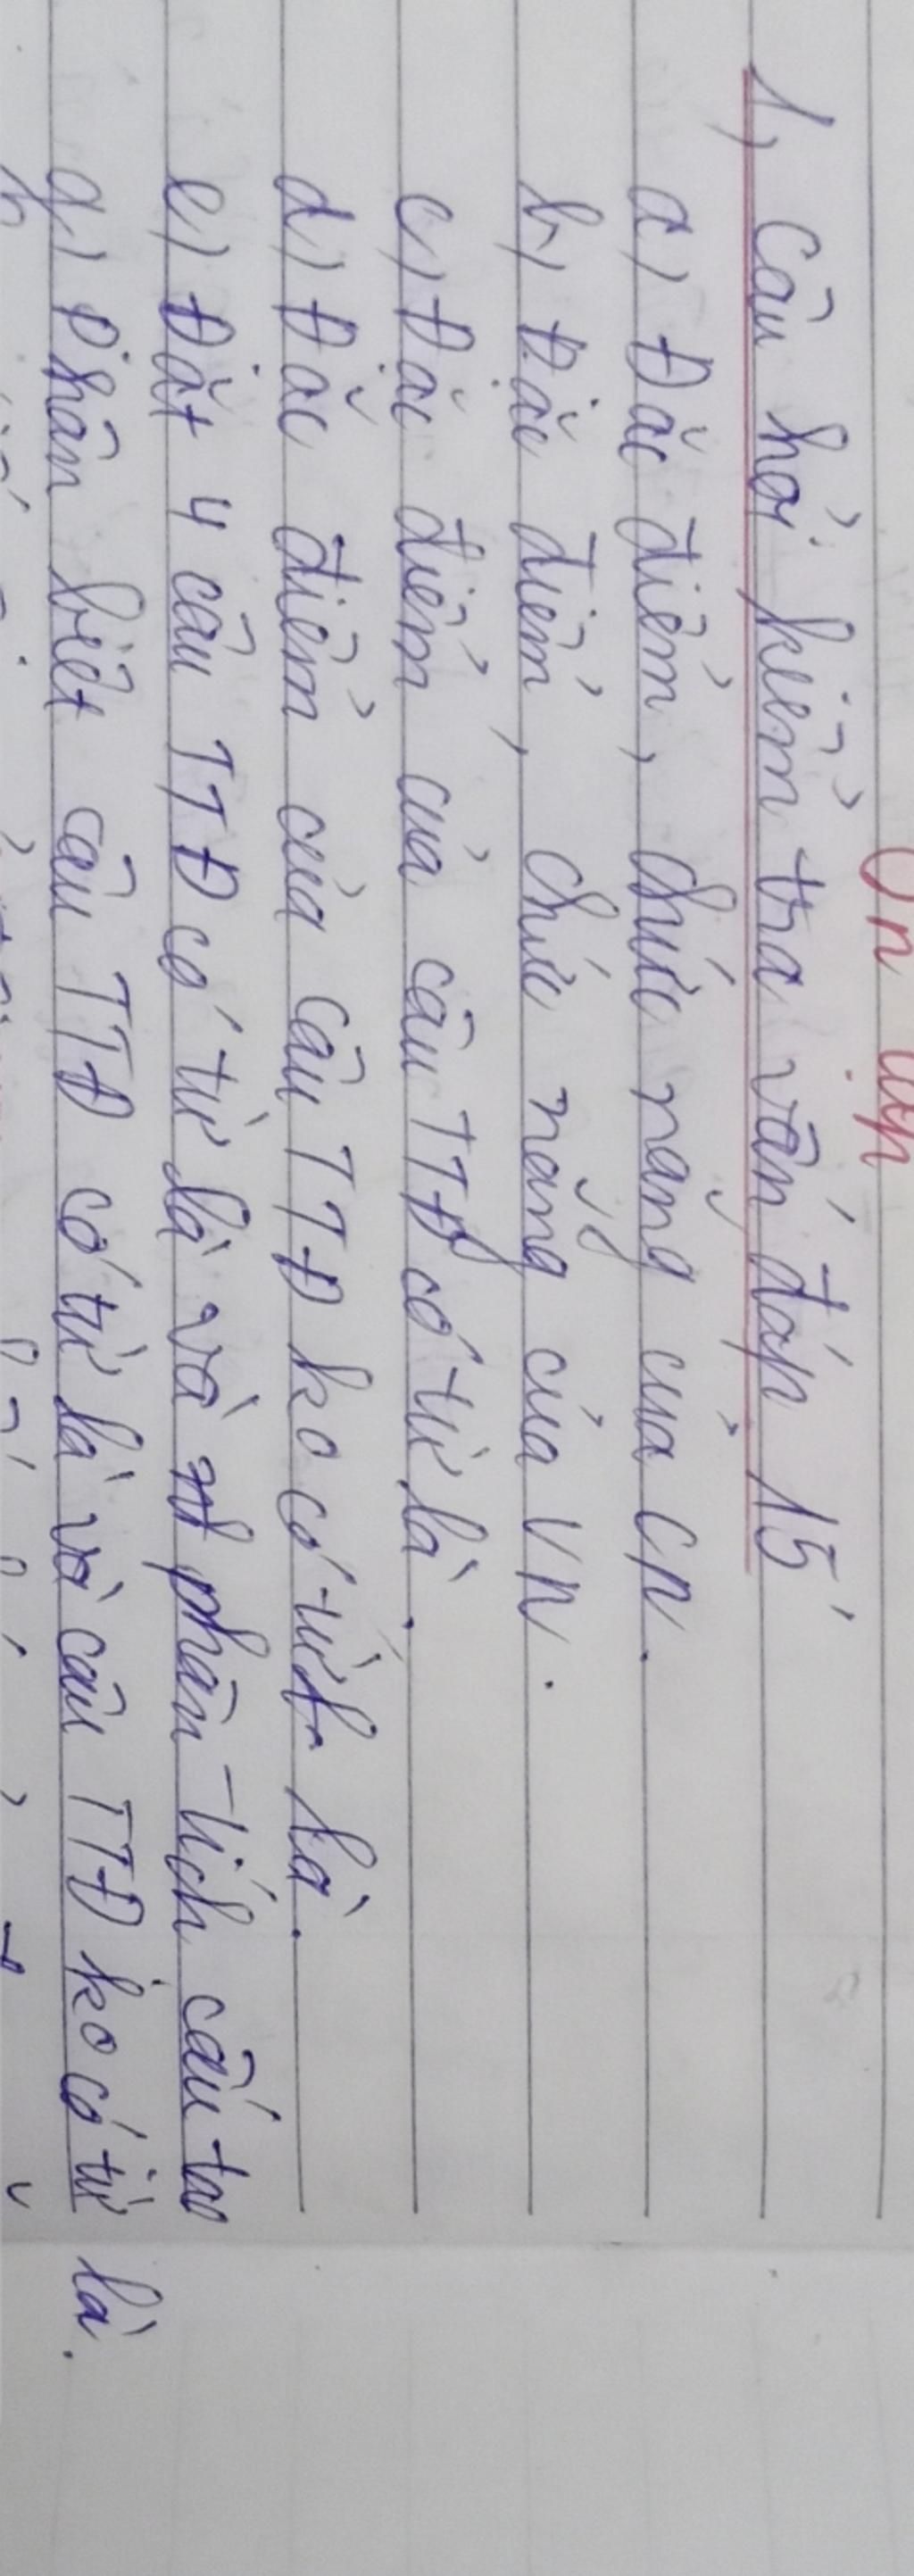 Ôn tập
1, Câu hỏi kiểm tra vấn đáp 15'
a) Đặc điểm, chức năng của CN.
b) Đặc điểm, chức năng của VN.
c) Đặc điểm của câu TTĐ có từ là.
d) Đặc điểm của câu TTĐ ko có từ là.
e) Đặt 4 câu TTĐ có từ là và phân tích cấu tạo
g) Phân biệt câu TTĐ có từ là và câu TTĐ ko có từ là.